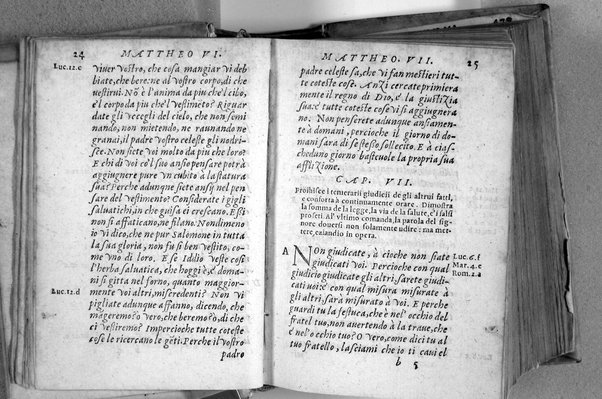 24 MATTHEO VI.
Luc.12.c
viver vostro, che cosa mangiar vi deb
biate, che bere: ne al vostro corpo, di che
vestirui. Nō è l'anima da piu che'l cibo,
e'l corpo da piu che'l vestimēto? Riguar
date gli vccegli del cielo, che non semi
nando, non mietendo, ne raunando ne
granai, il padre vostro celeste gli nodri-
sce. Non siete voi molto da piu che loro?
E chi di voi co'l suo ansio pensare porà
aggiugnere pure vn cubito à la statura
sua? Perche adunque siete ansij nel pen-
sare del vestimento? Considerate i gigli
saluatichi, in che guisa ei crescano. Essi
non si affaticano, ne filano. Nondimeno
io vi dico, che ne pur Salomone in tutta
la sua gloria, non fu si ben vestito, co-
me vno di loro. E se Iddio veste cosi
l'herba saluatica, che hoggi è, e doma-
ni si gitta nel forno, quanto maggior-
mente voi altri, miscredenti? Non vi
Luc.12.d
pigliate adunque affanno, dicendo, che
mageremo? o vero, che beremo? ò, di che
ci vestiremo? Impercioche tutte coteste
cose le ricercano le gēti. Perche il vostro
padre
MATTHEO. VII. 25
padre celeste sa, che vi san mestieri tut-
te coteste cose. Anzi cercate primiera
mente il regno di Dio, e la giustizia
sua: e tutte coteste cose vi si aggiugnera
no. Non penserete adunque ansiamen-
te à domani, percioche il giorno di do-
mani sarà di se stesso sollecito. E à cias-
cheduno giorno basteuole la propria sua
afflizione.
CAP. VII.
Prohibisce i temerarii giudicii de gli altrui fatti,
e conforta à continuamente orare. Dimostra
la somma de la legge, la via de la salute, e' i falsi
profeti. Al' vltimo comanda, la parola del sig-
nore douersi non solamente vdire: ma met-
tere, eziandio in opera.
A
NOn giudicate, à cioche non siate
Luc.6.f
giudicati voi. Percioche con qual
Mar.4.c
giudicio giudicate gli altri, sarete giudi-
Rom.2.a
cati uoi: e con qual misura misurate à
gli altri, sarà misurato à voi. E perche
guardi tu la festuca, che è nel' occhio del
fratel tuo, non auertendo à la traue, che
è nel' occhio tuo? O vero, come dici tu al
tuo fratello, lasciami che io ti caui el
b 5